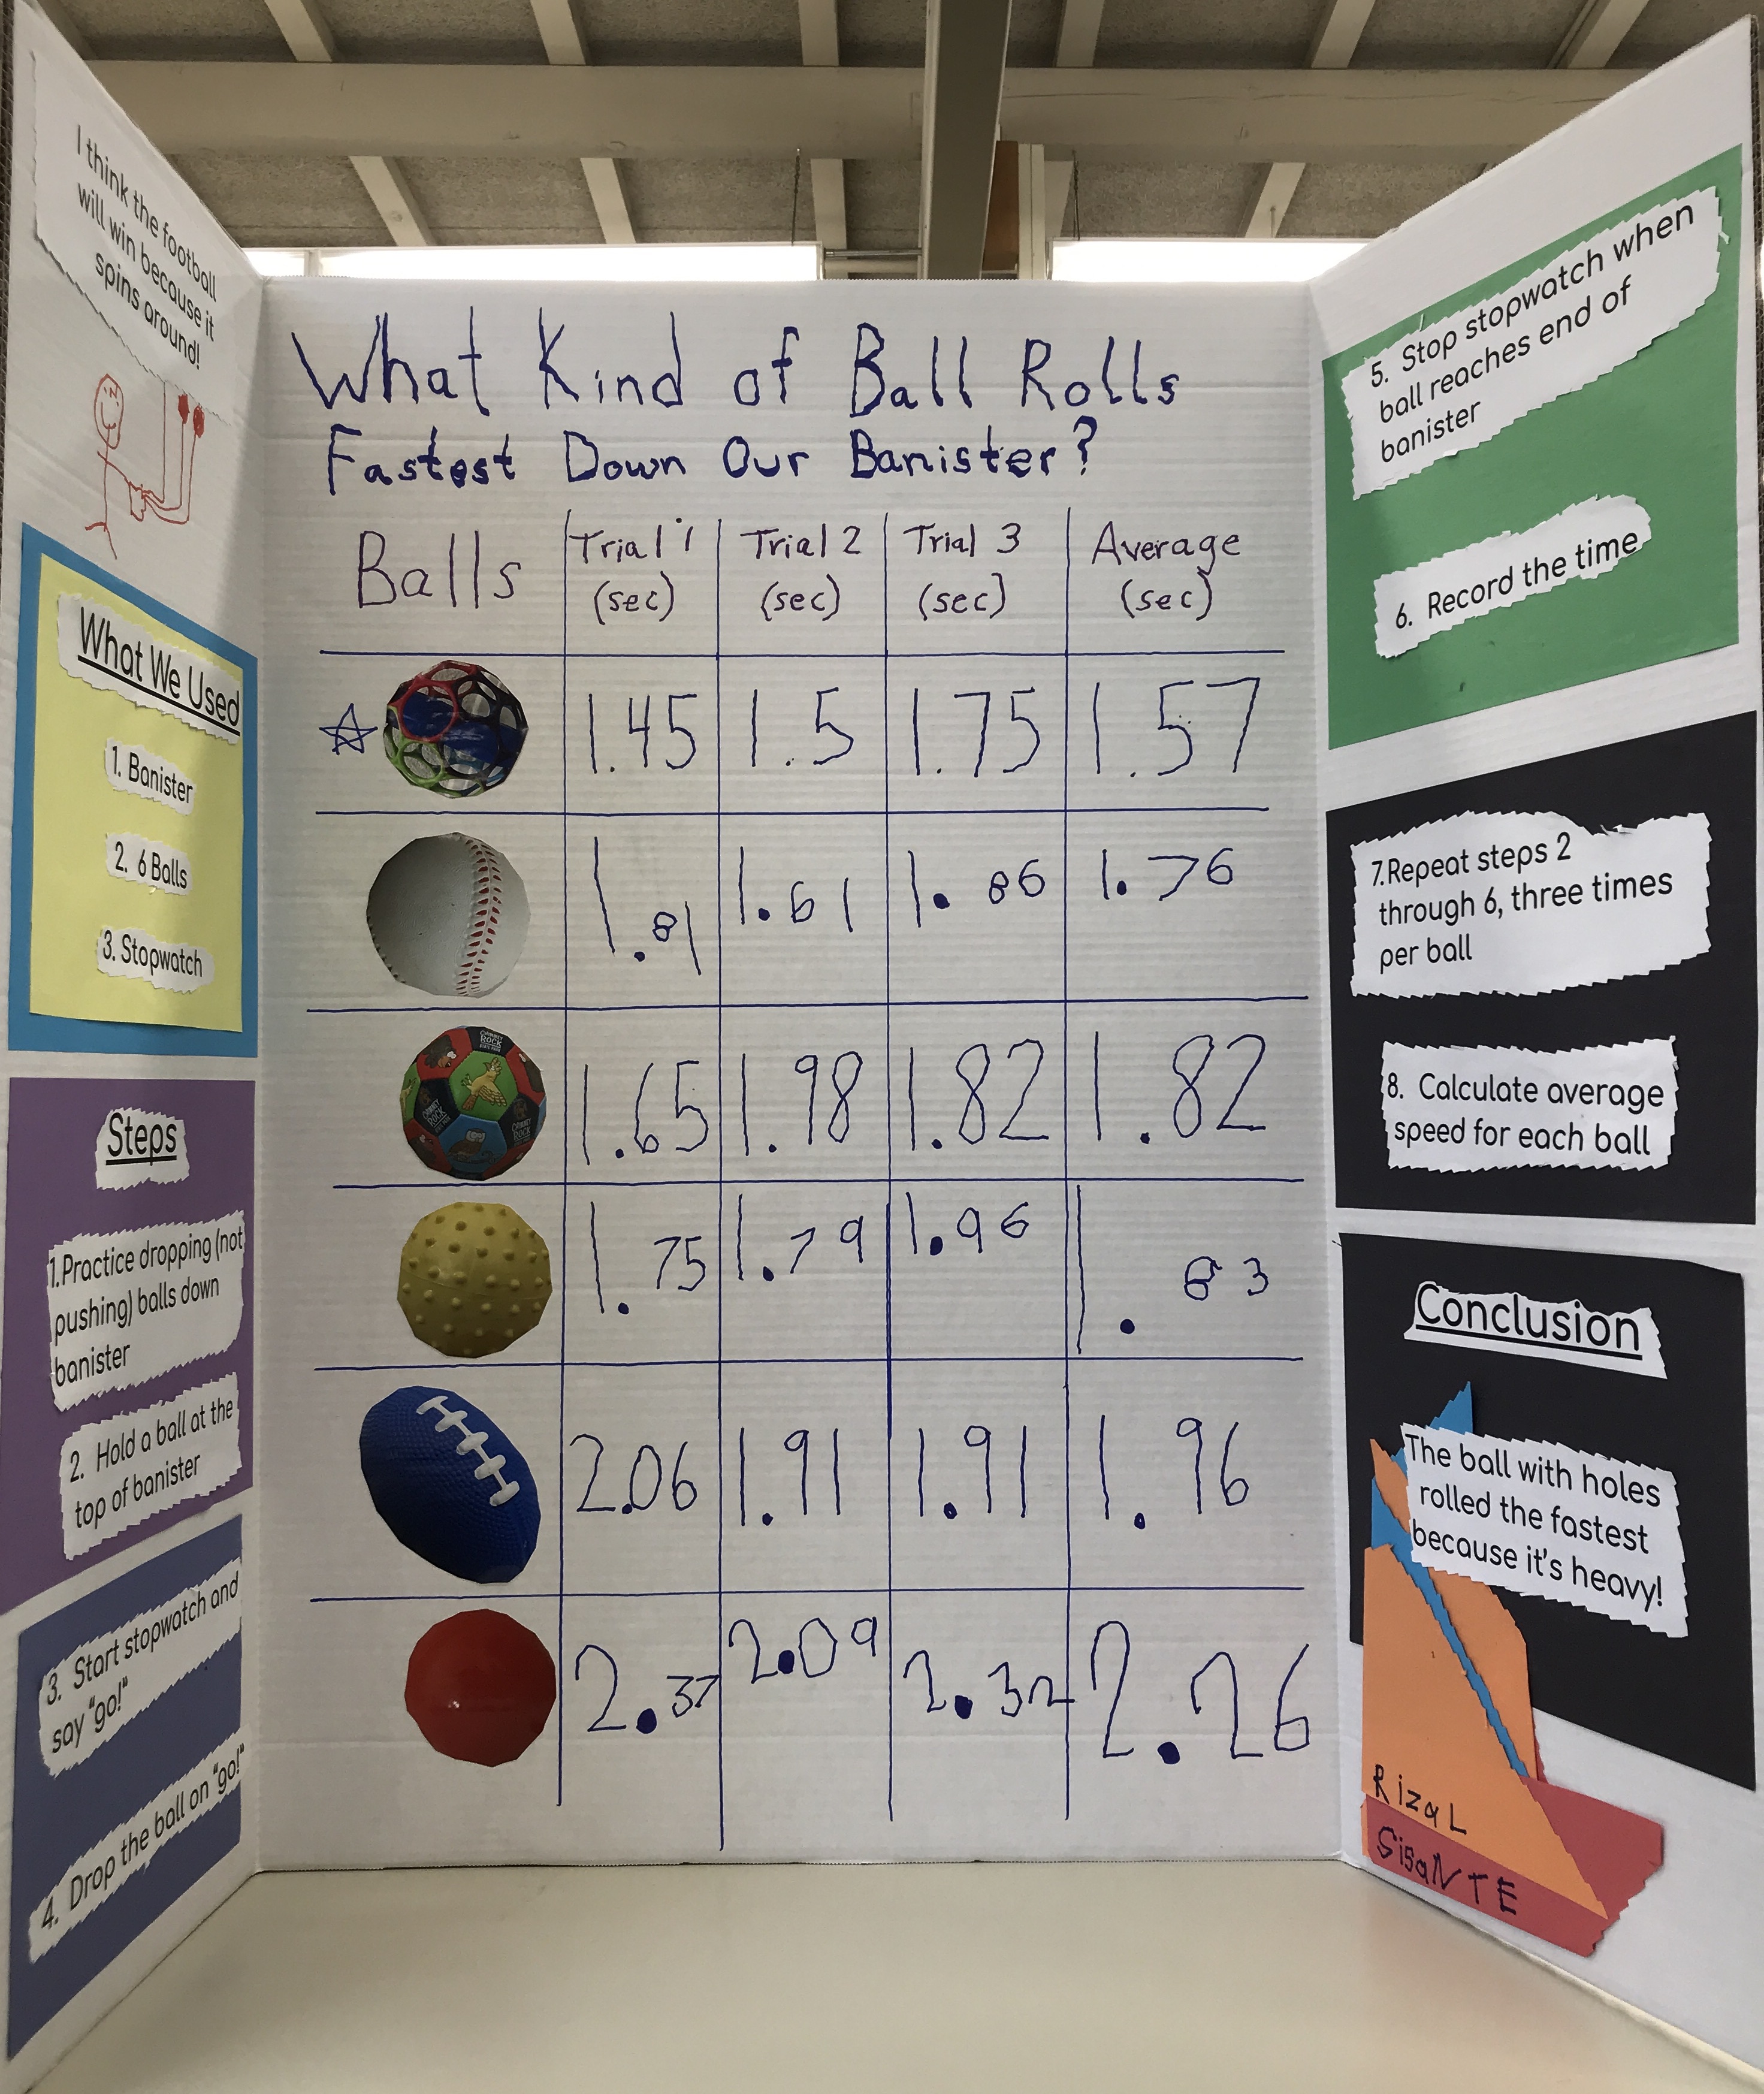 I think the football
will win because it
spins around!
What We Used
1. Banister
2. 6 Balls
3. Stopwatch
Steps
1.Practice dropping (not
pushing) balls down
banister
2. Hold a ball at the
top of banister
3. Start stopwatch and
say "go!"
4. Drop the ball on "go!"
What Kind of Ball Rolls
Fastest Down Our Banister?
Balls Trial 1 Trial 2 Trial 3 Average
(sec) (sec) (sec) (sec)
1.45 1.5 1.75 1.57
1.81 1.61 1.86 1.76
1.65 1.98 1.82 1.82
1.75 1.79 1.96 1.83
2.06 1.91 1.91 1.96
2.37 2.09 2.32 2.26
5. Stop stopwatch when
ball reaches end of
banister
6. Record the time
7.Repeat steps 2
through 6, three times
per ball
8. Calculate average
speed for each ball
Conclusion
The ball with holes
rolled the fastest
because it's heavy!
RizaL
SisaNTE